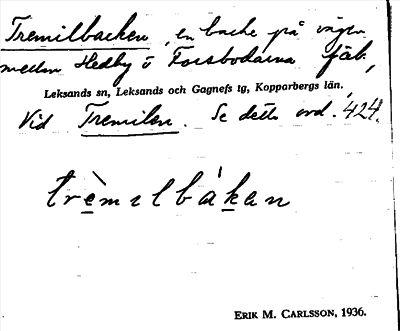 Tremilbacken, en backe på vägen
mellan Hedby o Forsbodarna fäb.,
Leksands sn, Leksands och Gagnefs tg, Kopparbergs län.
Vid Tremilen. Se detta ord. 424.
trèmılbákan
ERIK M. CARLSSON, 1936.